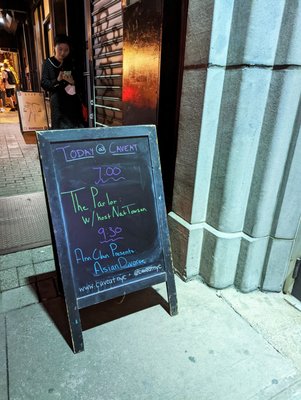 TODAY @ CAVEAT
7:00
The Parlor
w/ host Nat Towsen
9:30
Ann Chun Presents
Asian Divorce
www.caveat.nyc • @caveatnyc